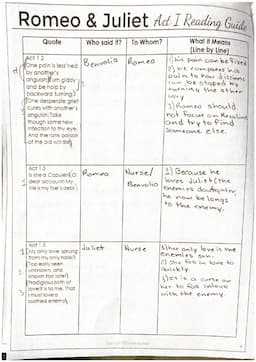 Romeo & Juliet Act I Reading Guide
Quote
Who said it?
To Whom?
What it Means
(Line by Line)
Act 1.2
One pain is less'ned
by another's
anguish; turn giddy,
and be holp by
backward turning;
One desperate grief
cures with another's
anguish; Take
thou some new
infection to thy eye,
And the rank poison
of the old will die.
Benvolio
Romeo
1) his pain can be fixed
2) he compares his
pain to how dizziness
can be stopped by
turning the other
way
3) Romeo should
not focus on Rosaline
and try to find
someone else.
Act 1.5
Is she a Capulet? O
dear account! My
life is my foe's debt.
Romeo
Nurse/
Benvolio
1) Because he
loves Juliet (the
enemies daughter)
he now belongs
to the enemy.
Act 1.5
My only love sprung
from my only hate!
Too early seen
unknown, and
known too late!
Prodigious birth of
love it is to me, That
I must love a
loathed enemy.
1
2
3
Juliet
Nurse
1) Her only love is the
enemies son.
2) she fell in love to
quickly.
3) It is a curse on
her to fall inlove
with the enemy.